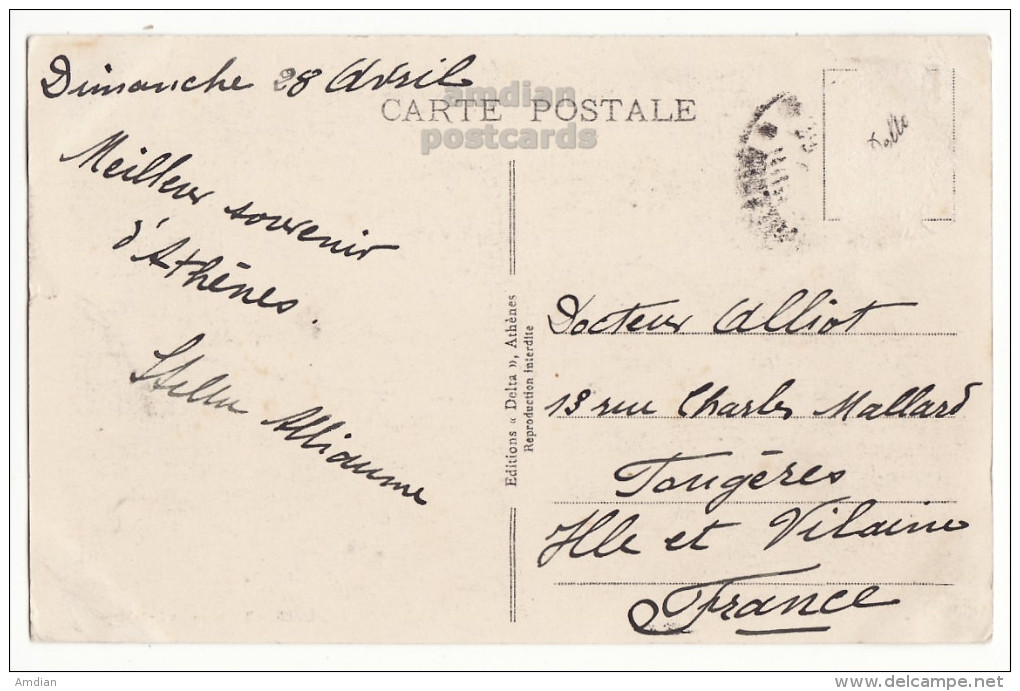 Dimanche 28 Avril
amdian
postcards
CARTE POSTALE
Meilleur souvenir
d'Athènes.
Stella Alliaume
Editions « Delta », Athènes
Reproduction interdite
Docteur Alliot
13 rue Charles Mallard
Fougères
Ille et Vilaine
France
Amdian
delcampe.net